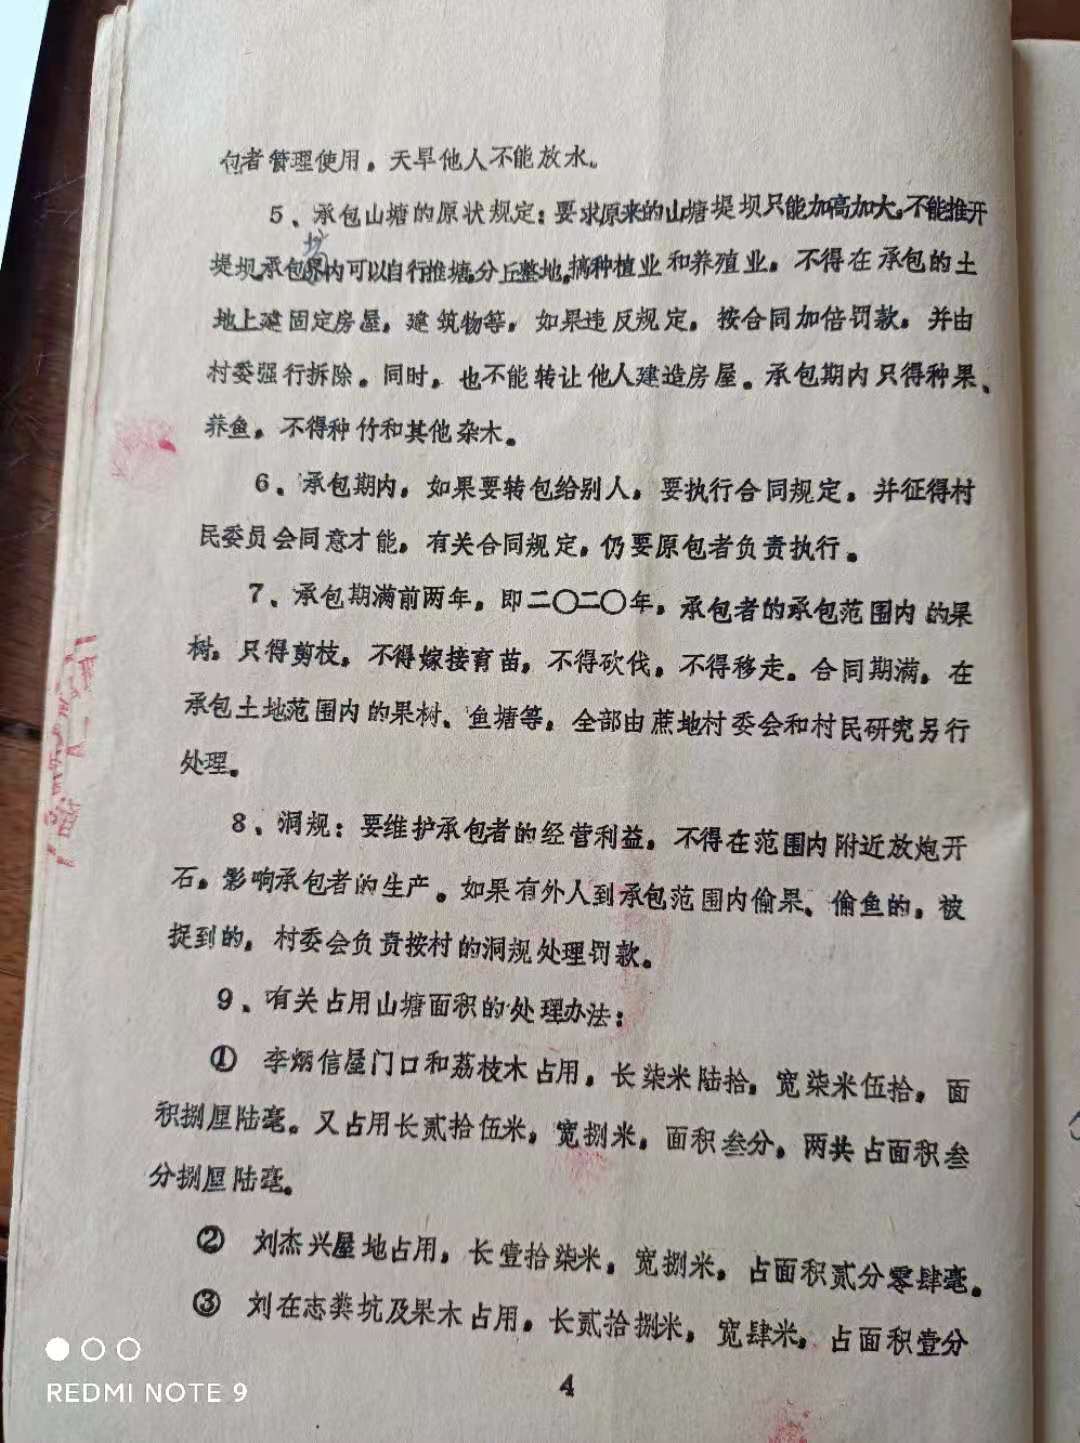 包者管理使用，天旱他人不能放水。
5、承包山塘的原状规定：要求原来的山塘堤坝只能加高加大，不能推开
堤坝，承包界内可以自行推塘，分丘整地，搞种植业和养殖业，不得在承包的土
地上建固定房屋，建筑物等，如果违反规定，按合同加倍罚款，并由
村委强行拆除。同时，也不能转让他人建造房屋。承包期内只得种果、
养鱼，不得种竹和其他杂木。
6、承包期内，如果要转包给别人，要执行合同规定，并征得村
民委员会同意才能，有关合同规定，仍要原包者负责执行。
7、承包期满前两年，即二〇二〇年，承包者的承包范围内的果
树，只得剪枝，不得嫁接育苗，不得砍伐，不得移走。合同期满，在
承包土地范围内的果树、鱼塘等，全部由蔗地村委会和村民研究另行
处理。
8、洞规：要维护承包者的经营利益，不得在范围内附近放炮开
石，影响承包者的生产。如果有外人到承包范围内偷果、偷鱼的，被
捉到的，村委会负责按村的洞规处理罚款。
9、有关占用山塘面积的处理办法：
① 李炳信屋门口和荔枝木占用，长柒米陆拾，宽柒米伍拾，面
积捌厘陆毫。又占用长贰拾伍米，宽捌米，面积叁分，两共占面积叁
分捌厘陆毫。
② 刘杰兴屋地占用，长壹拾柒米，宽捌米，占面积贰分零肆毫。
③ 刘在志粪坑及果木占用，长贰拾捌米，宽肆米，占面积壹分
4
REDMI NOTE 9